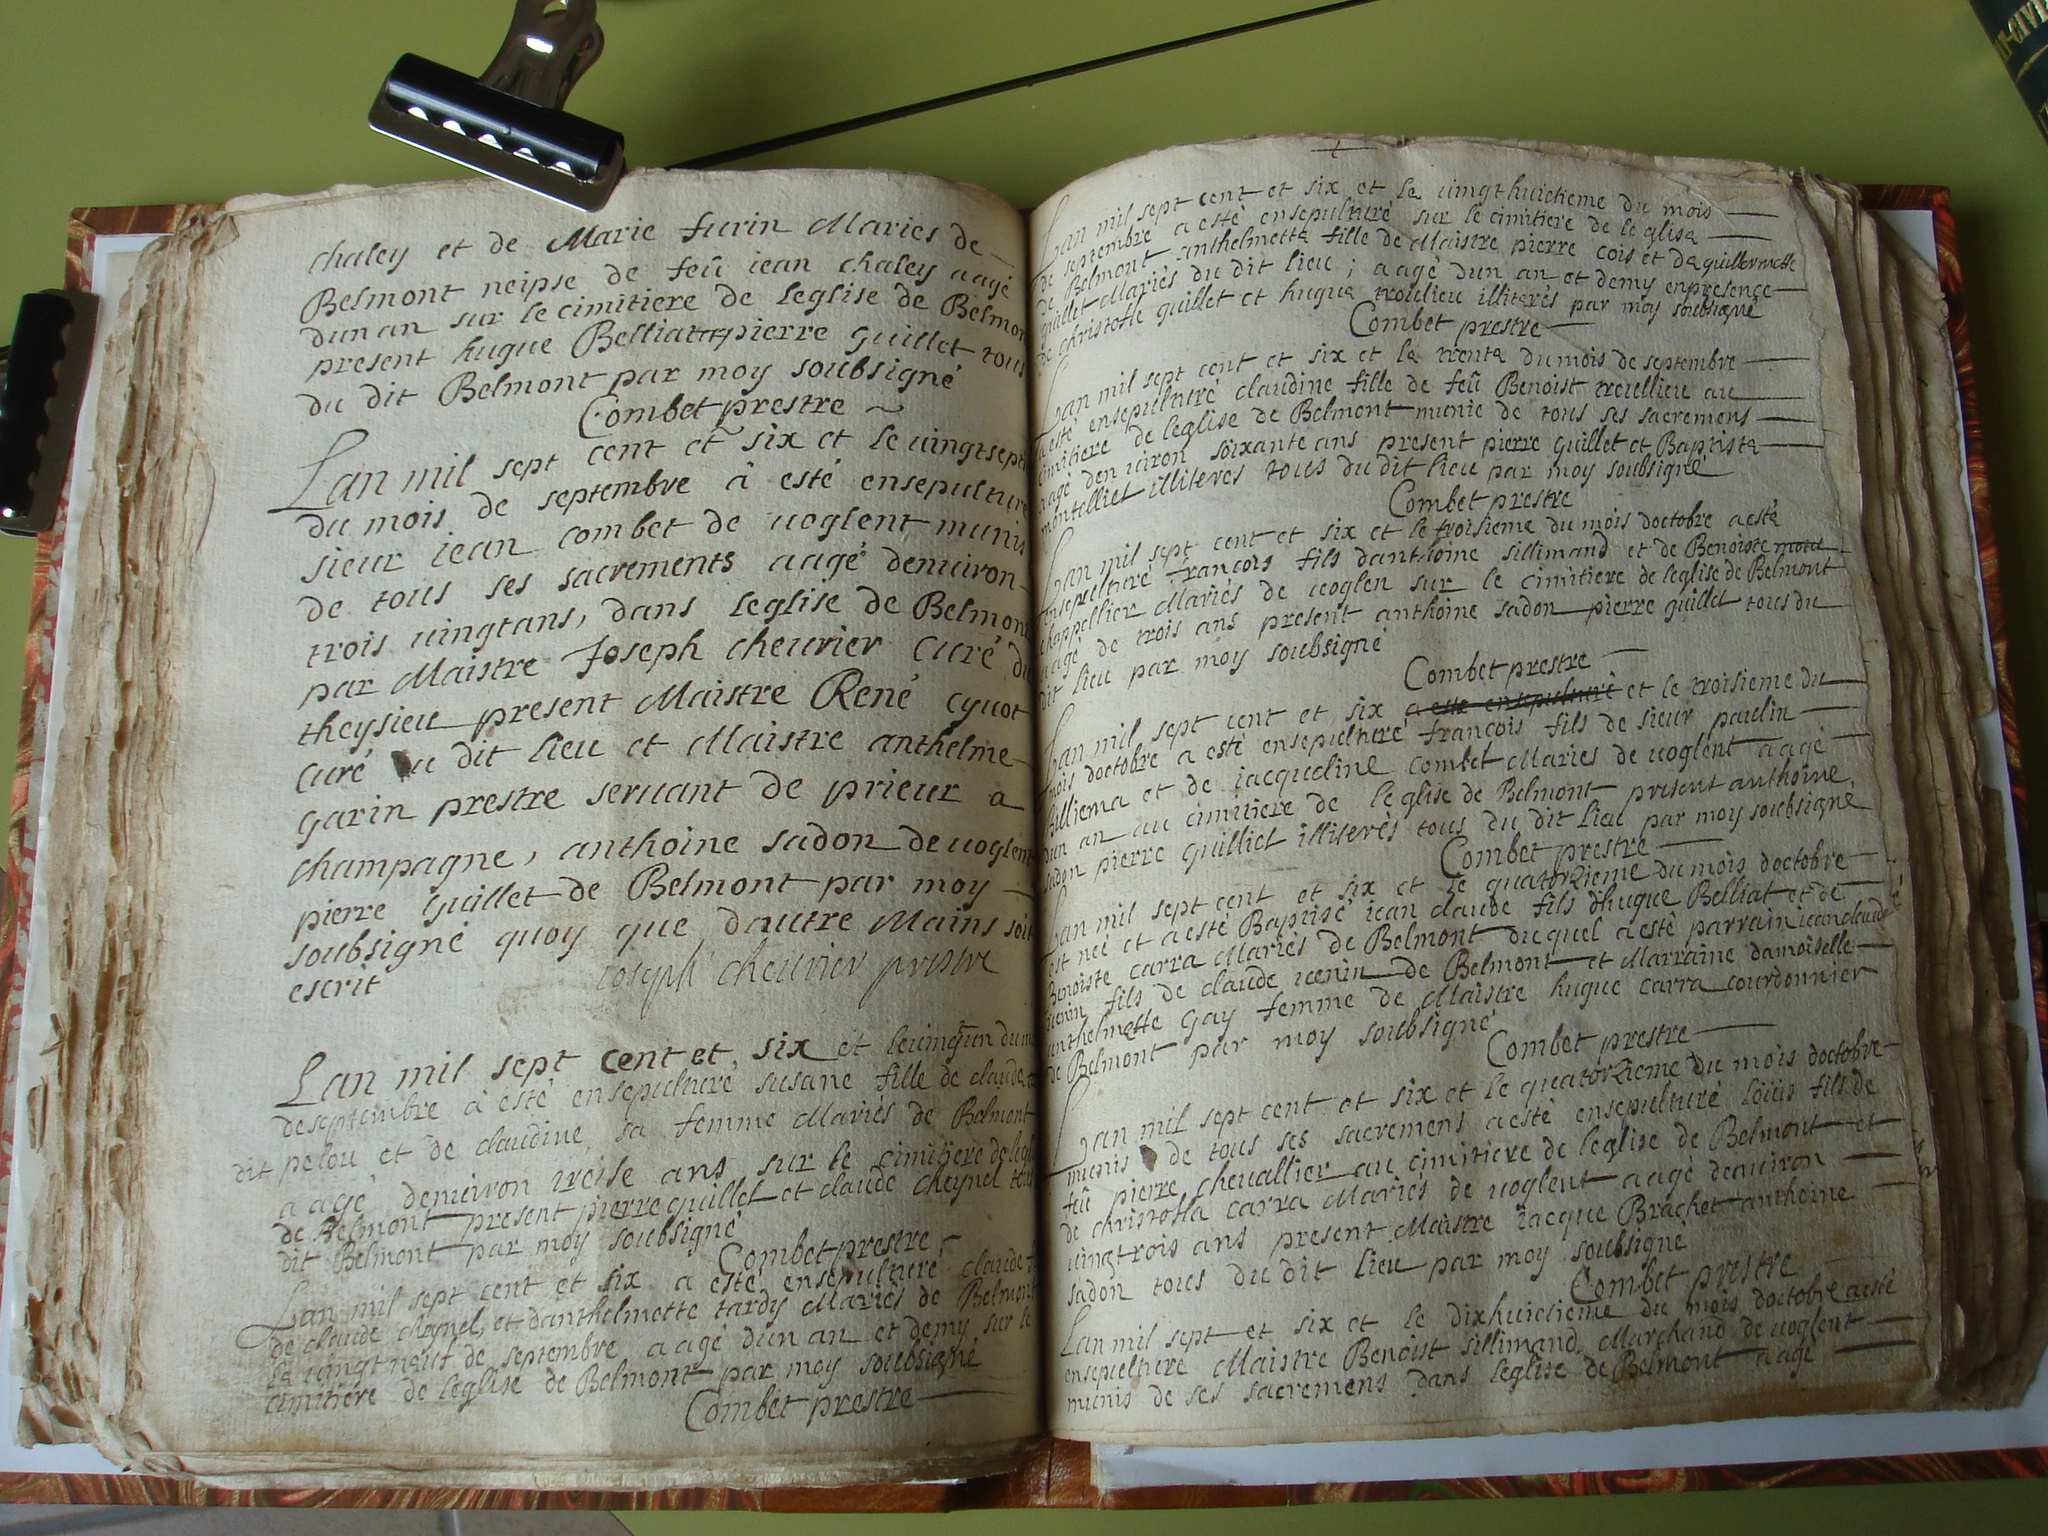 chaley et de Marie furin Mariés de
Belmont neipse de feû iean chaley aagé
dun an sur le cimitiere de leglise de Belmon
present hugue Belliat pierre guillet tous
du dit Belmont par moy soubsigné
Combet prestre
Lan mil sept cent et six et le uingtsept
du mois de septembre â esté ensepulturé
sieur iean combet de uoglent munis
de tous ses sacrements aagé denuiron
trois uingtans, dans leglise de Belmont
par Maistre Joseph cheurier Curé du
theysieu present Maistre René cyuot
Curé du dit lieu et Maistre anthelme
garin prestre seruant de prieur a
champagne, anthoine sadon de uoglent
pierre guillet de Belmont par moy
soubsigné quoy que dautre Mains soit
escrit
Joseph cheurier prestre
Lan mil sept cent et six et le uingt un du
de septembre â esté ensepulturé susane fille de claude
dit pelou et de claudine sa femme Mariés de Belmont
aagé denuiron treise ans sur le cimitiere de
de Belmont present pierre guillet et claude cheynel tous
dit Belmont par moy soubsigné
Combet prestre
Lan mil sept cent et six a esté ensepulturé claude
de claude cheynel, et danthelmette tardy Mariés de Belmont
le uingt neuf de septembre aagé dun an et demy sur le
cimitiere de leglise de Belmont par moy soubsigné
Combet prestre
Lan mil sept cent et six et le uingthuictieme du mois
de septembre a esté ensepulturé sur le cimitiere de leglise
de Belmont anthelmette fille de Maistre pierre cois et de guillermette
guillet Mariés du dit lieu; aagé dun an et demy enpresence
de christofle guillet et hugue troulieu illiterés par moy soubsigné
Combet prestre
Lan mil sept cent et six et le trente du mois de septembre
a esté ensepulturé claudine fille de feû Benoist troullieu au
cimitiere de leglise de Belmont munie de tous ses sacremens
aagé den uiron soixante ans present pierre guillet et Baptiste
montelliet illiteres tous du dit lieu par moy soubsigné
Combet prestre
Lan mil sept cent et six et le troisieme du mois doctobre a esté
ensepulturé francois fils danthoine sillimand et de Benoiste
chappellier Mariés de uoglen sur le cimitiere de leglise de Belmont
aagé de trois ans present anthoine sadon pierre guillet tous du
dit lieu par moy soubsigné
Combet prestre
Lan mil sept cent et six a esté ensepulturé et le troisieme du
mois doctobre a esté ensepulturé francois fils de sieur paulin
billiema et de jacqueline combet Mariés de uoglent aagé
dun an au cimitiere de leglise de Belmont present anthoine
sadon pierre guilliet illiterés tous du dit lieu par moy soubsigné
Combet prestre
Lan mil sept cent et six et le quatorzieme du mois doctobre
est né et a esté Baptisé iean claude fils dhugue Belliat et de
Benoiste carra Mariés de Belmont duquel a esté parrain iean claude
uenin fils de claude uenin de Belmont et Marraine damoiselle
anthelmette Gay femme de Maistre hugue carra courdonnier
de Belmont par moy soubsigné
Combet prestre
Lan mil sept cent et six et le quatorzieme du mois doctobre
munis de tous ses sacremens a esté ensepulturé loüis fils de
feû pierre cheuallier au cimitiere de leglise de Belmont et
de christofla carra Mariés de uoglent aagé denuiron
uingtrois ans present Maistre Jacque Brachet anthoine
sadon tous du dit lieu par moy soubsigné
Combet prestre
Lan mil sept et six et le dixhuictieme du mois doctobre a esté
ensepulture Maistre Benoist sillimand Marchand de uoglent
munis de ses sacremens dans leglise de Belmont aagé